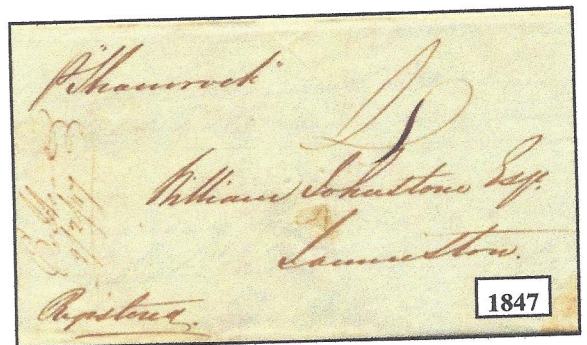 p "Shamrock"
William Johnstone Esq.
Launceston.
Registered.
1847